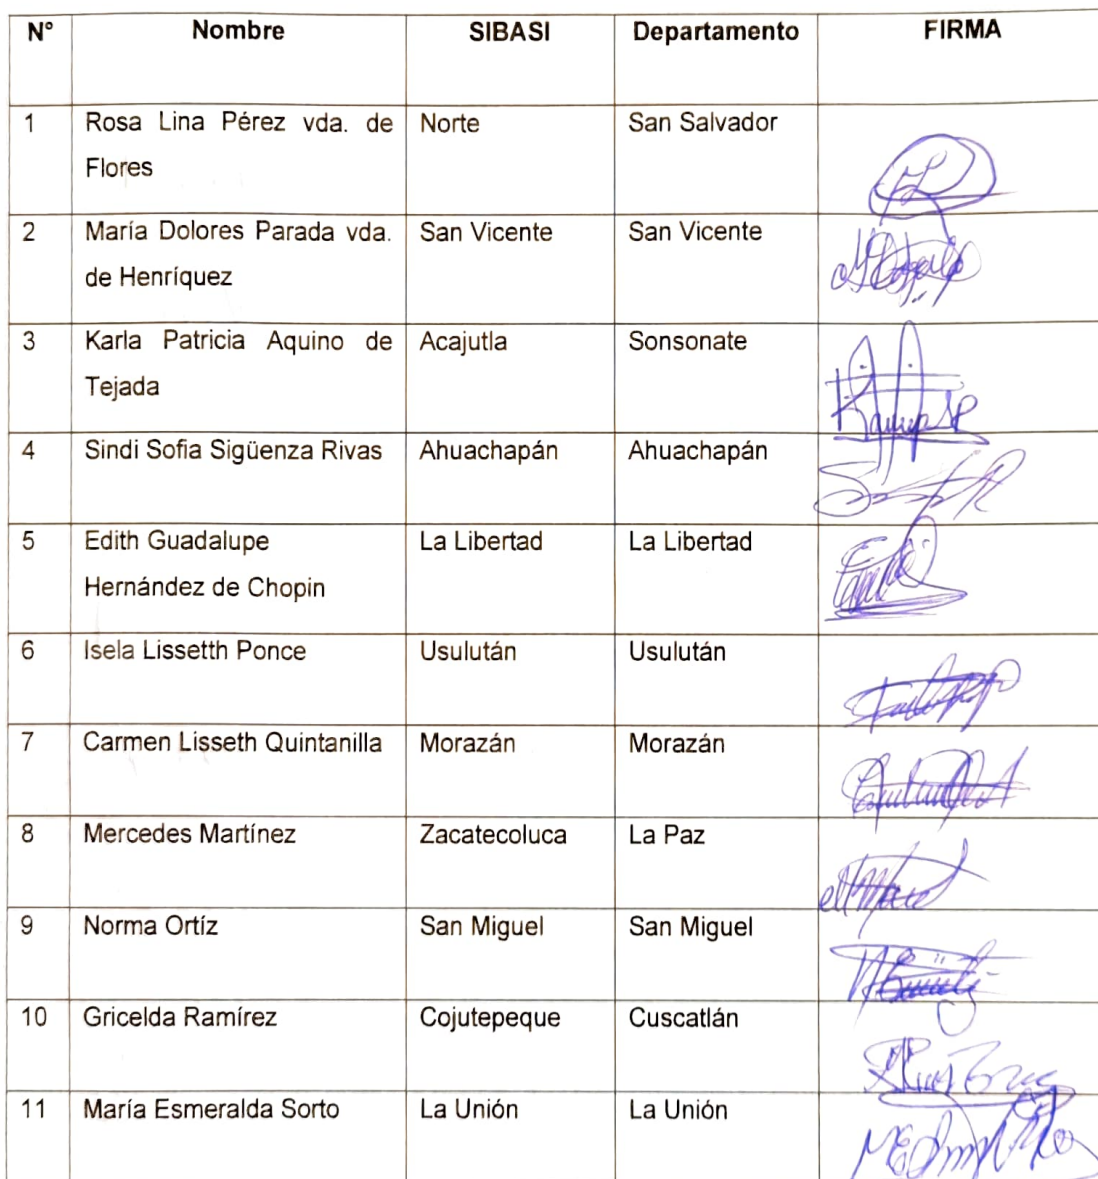 N° Nombre SIBASI Departamento FIRMA
1 Rosa Lina Pérez vda. de Norte San Salvador
Flores
2 María Dolores Parada vda. San Vicente San Vicente
de Henríquez
3 Karla Patricia Aquino de Acajutla Sonsonate
Tejada
4 Sindi Sofia Sigüenza Rivas Ahuachapán Ahuachapán
5 Edith Guadalupe La Libertad La Libertad
Hernández de Chopin
6 Isela Lissetth Ponce Usulután Usulután
7 Carmen Lisseth Quintanilla Morazán Morazán
8 Mercedes Martínez Zacatecoluca La Paz
9 Norma Ortíz San Miguel San Miguel
10 Gricelda Ramírez Cojutepeque Cuscatlán
11 María Esmeralda Sorto La Unión La Unión